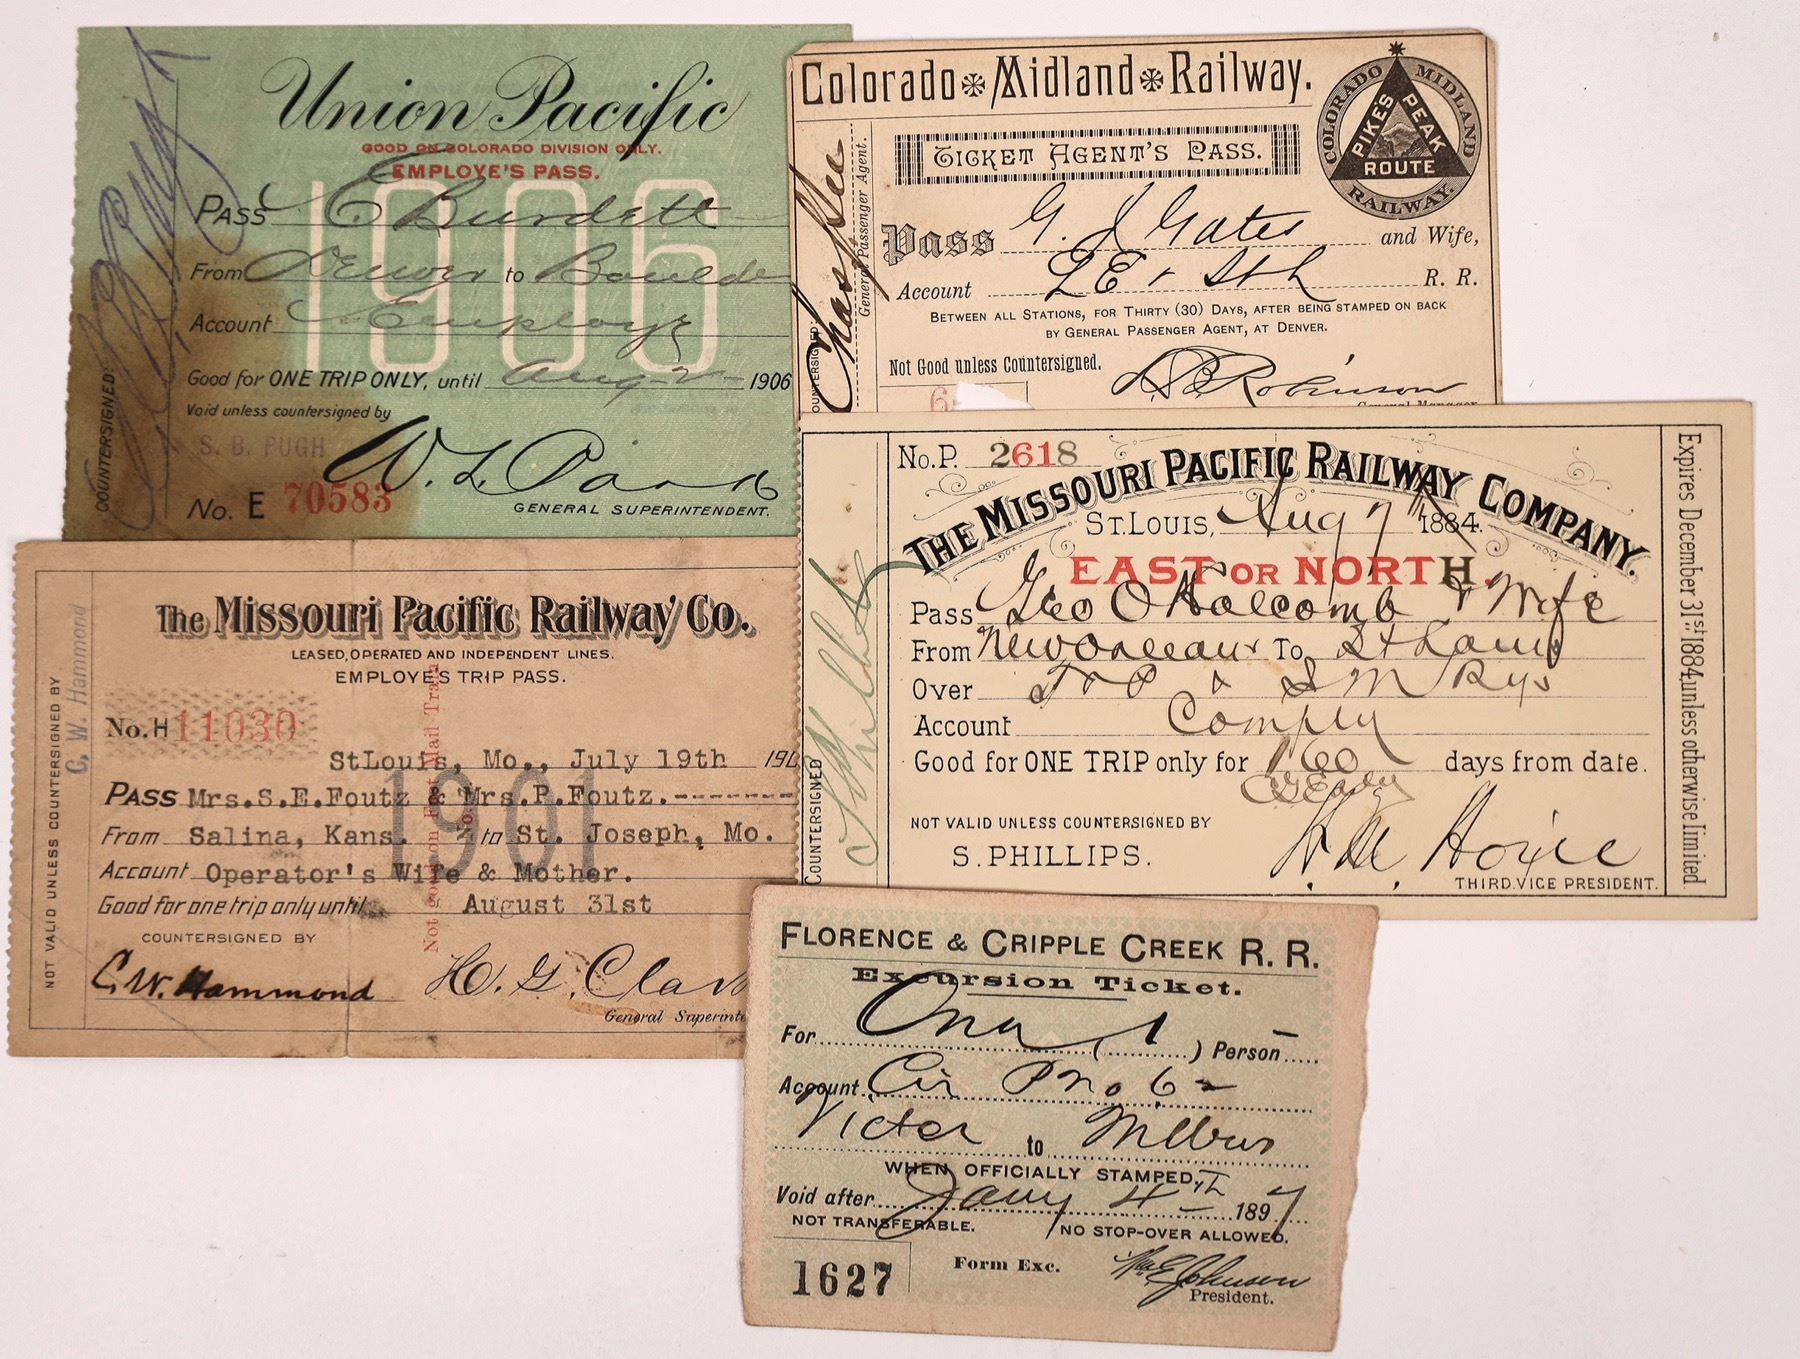 Union Pacific
GOOD ON COLORADO DIVISION ONLY.
EMPLOYE'S PASS.
1906
PASS E Burdett
From Denver to Boulde
Account Employe
Good for ONE TRIP ONLY, until Aug 2 1906
Void unless countersigned by
S. B. PUGH
No. E 70583
GENERAL SUPERINTENDENT.
COUNTERSIGNED:
S B Pugh
Colorado Midland Railway.
TICKET AGENT'S PASS.
COLORADO MIDLAND RAILWAY.
PIKES PEAK ROUTE
Pass G. J Gates and Wife,
Account R. R.
BETWEEN ALL STATIONS, FOR THIRTY (30) DAYS, AFTER BEING STAMPED ON BACK
BY GENERAL PASSENGER AGENT, AT DENVER.
Not Good unless Countersigned.
Robinson
6
General Manager
OUNTERSIGNED:
Chas S Lee
General Passenger Agent.
No. P. 2618
THE MISSOURI PACIFIC RAILWAY COMPANY.
ST. LOUIS, Aug 7 1884.
EAST OR NORTH.
Pass Geo O Holcomb & Wife
From New Orleans To St Louis
Over T & P & I M Rys
Account Compy
Good for ONE TRIP only for 60 days from date.
NOT VALID UNLESS COUNTERSIGNED BY
S. PHILLIPS.
H. M. Hoxie
THIRD VICE PRESIDENT.
COUNTERSIGNED
S Phillips
Expires December 31st 1884, unless otherwise limited
The Missouri Pacific Railway Co.
LEASED, OPERATED AND INDEPENDENT LINES.
EMPLOYES TRIP PASS.
No. H 11030
St Louis, Mo., July 19th 190
1901
PASS Mrs.S.E.Foutz & Mrs.P.Foutz.--------
From Salina, Kans. to St. Joseph, Mo.
Account Operator's Wife & Mother.
Good for one trip only until August 31st
COUNTERSIGNED BY
C. W. Hammond
H. G. Clark
General Superinte
NOT VALID UNLESS COUNTERSIGNED BY
C. W. Hammond
Not good on Fast Mail Train No.
FLORENCE & CRIPPLE CREEK R. R.
Excursion Ticket.
For One ( 1 ) Person
Account Cir No 6
Victor to Wilbur
WHEN OFFICIALLY STAMPED,
Void after Jany 4th 1897
NOT TRANSFERABLE. NO STOP-OVER ALLOWED.
1627
Form Exc.
Johnson
President.